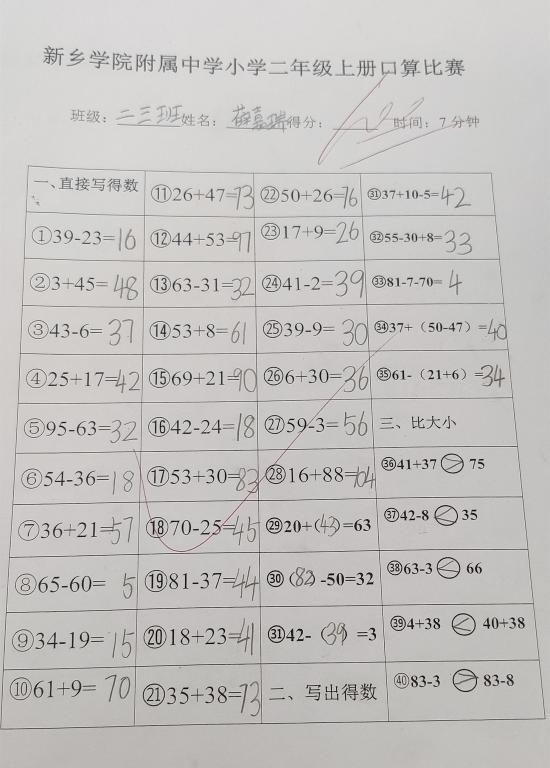 新乡学院附属中学小学二年级上册口算比赛
班级：二三班 姓名： 得分： 时间：7分钟
一、直接写得数 ⑪26+47=73 ㉒50+26=76 ㉛37+10-5=42
①39-23=16 ⑫44+53=97 ㉓17+9=26 ㉜55-30+8=33
②3+45=48 ⑬63-31=32 ㉔41-2=39 ㉝81-7-70=4
③43-6=37 ⑭53+8=61 ㉕39-9=30 ㉞37+（50-47）=40
④25+17=42 ⑮69+21=90 ㉖6+30=36 ㉟61-（21+6）=34
⑤95-63=32 ⑯42-24=18 ㉗59-3=56 三、比大小
⑥54-36=18 ⑰53+30=83 ㉘16+88=104 ㊱41+37 > 75
⑦36+21=57 ⑱70-25=45 ㉙20+(43)=63 ㊲42-8 < 35
⑧65-60=5 ⑲81-37=44 ㉚(82)-50=32 ㊳63-3 < 66
⑨34-19=15 ⑳18+23=41 ㉛42-(39)=3 ㊴4+38 < 40+38
⑩61+9=70 ㉑35+38=73 二、写出得数 ㊵83-3 > 83-8